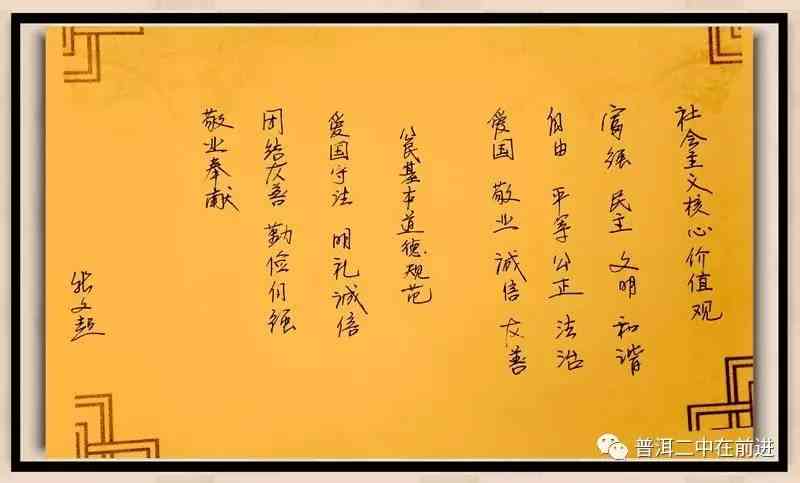 社会主义核心价值观
富强 民主 文明 和谐
自由 平等 公正 法治
爱国 敬业 诚信 友善
公民基本道德规范
爱国守法 明礼诚信
团结友善 勤俭自强
敬业奉献
张文超
普洱二中在前进